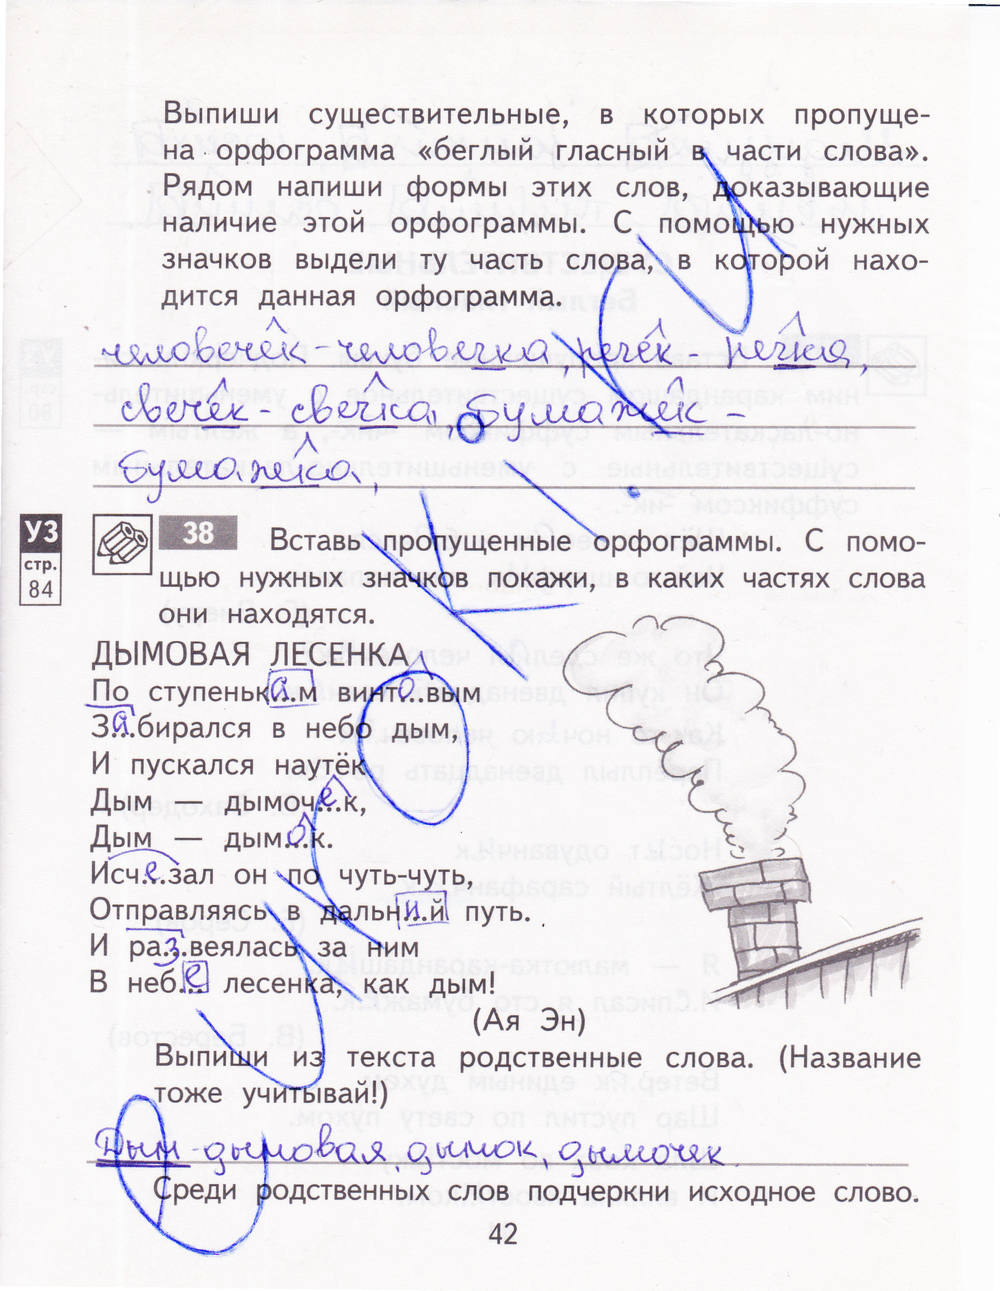 Выпиши существительные, в которых пропуще-
на орфограмма «беглый гласный в части слова».
Рядом напиши формы этих слов, доказывающие
наличие этой орфограммы. С помощью нужных
значков выдели ту часть слова, в которой нахо-
дится данная орфограмма.
человечек-человечка, речек речка,
свечек-свечка, бумажек -
бумажка,
У3
стр.
84
38 Вставь пропущенные орфограммы. С помо-
щью нужных значков покажи, в каких частях слова
они находятся.
ДЫМОВАЯ ЛЕСЕНКА
По ступенька..м винто..вым
За..бирался в небо дым,
И пускался наутёк
Дым — дымоче..к,
Дым — дымо..к.
Исче..зал он по чуть-чуть,
Отправляясь в дальни..й путь.
И раз..веялась за ним
В небе.. лесенка, как дым!
(Ая Эн)
Выпиши из текста родственные слова. (Название
тоже учитывай!)
Дым-дымовая, дымок, дымочек.
Среди родственных слов подчеркни исходное слово.
42